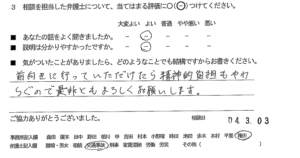 3 相談を担当した弁護士について、当てはまる評価に○(⊖)つけてください。
大変よい よい 普通 やや悪い 悪い
■ あなたの話をよく聞きましたか。
■ 説明は分かりやすかったですか。
■ 気がついたことがありましたら、どのようなことでも結構ですからお書きください。
前向きに行っていただけたら精神的負担もやわ
らぐので是非ともよろしくお願いします。
ご協力ありがとうございました。
相談日 04.3.03
事務所記入欄
弁護士記入欄 離婚・男女 相続 交通事故 刑事 家賃滞納 労働 労災 その他( )